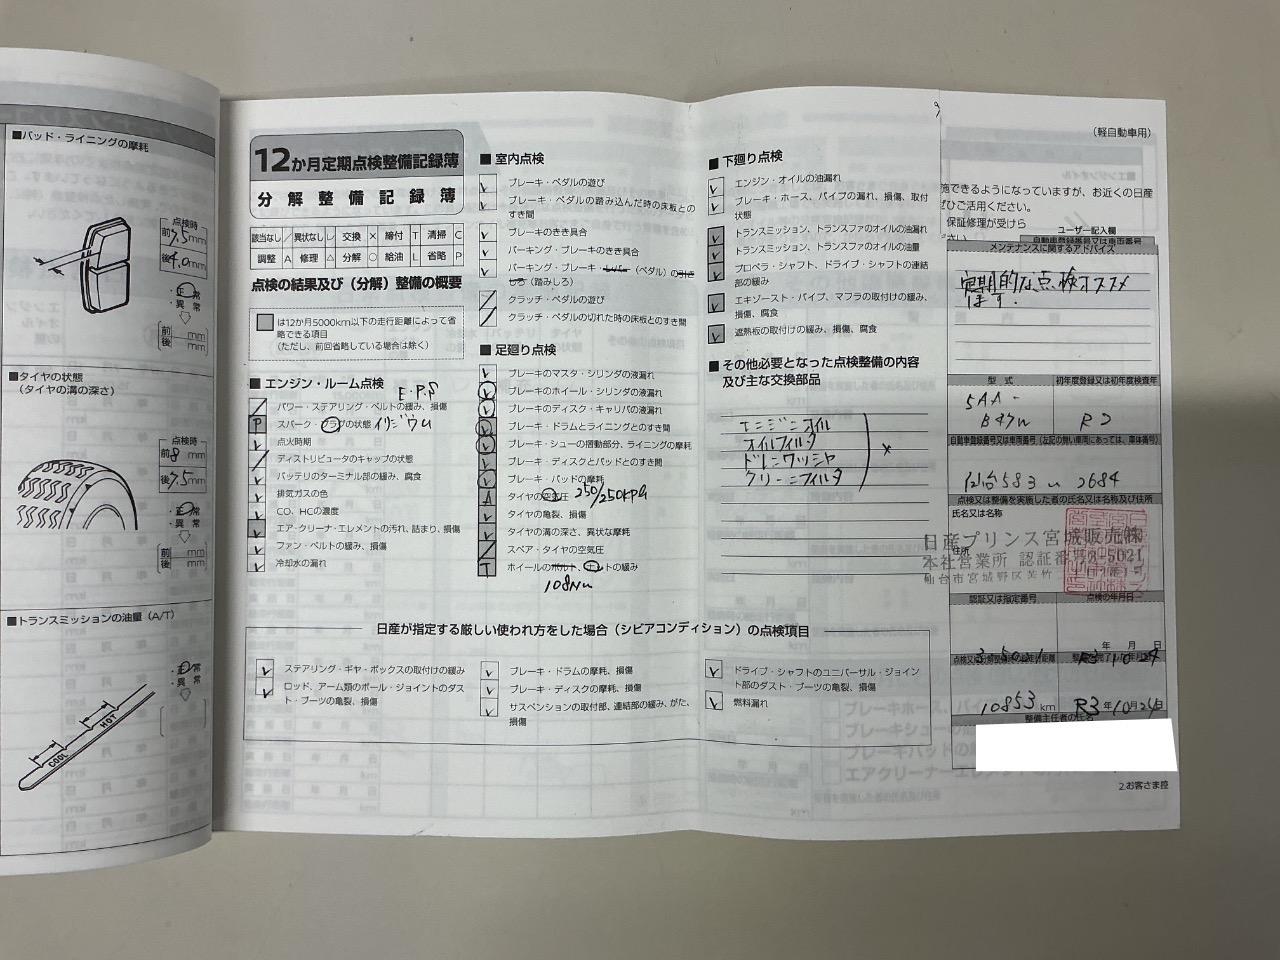 ■パッド・ライニングの摩耗
点検時
前7.5mm
後4.0mm
・正常
・異常
前 mm
後 mm
■タイヤの状態
（タイヤの溝の深さ）
点検時
前8mm
後7.5mm
・正常
・異常
前 mm
後 mm
■トランスミッションの油量（A/T）
・正常
・異常
HOT
COOL
12か月定期点検整備記録簿
分解整備記録簿
該当なし / 異状なし レ 交換 × 締付 T 清掃 C
調整 A 修理 △ 分解 ○ 給油 L 省略 P
点検の結果及び（分解）整備の概要
は12か月5000km以下の走行距離によって省
略できる項目
（ただし、前回省略している場合は除く）
■エンジン・ルーム点検
E.P.S
パワー・ステアリング・ベルトの緩み、損傷
P スパーク・プラグの状態 イリジウム
点火時期
ディストリビュータのキャップの状態
バッテリのターミナル部の緩み、腐食
排気ガスの色
CO、HCの濃度
エア・クリーナ・エレメントの汚れ、詰まり、損傷
ファン・ベルトの緩み、損傷
冷却水の漏れ
■室内点検
ブレーキ・ペダルの遊び
ブレーキ・ペダルの踏み込んだ時の床板との
すき間
ブレーキのきき具合
パーキング・ブレーキのきき具合
パーキング・ブレーキ・レバー（ペダル）の引き
しろ（踏みしろ）
クラッチ・ペダルの遊び
クラッチ・ペダルの切れた時の床板とのすき間
■足廻り点検
ブレーキのマスタ・シリンダの液漏れ
ブレーキのホイール・シリンダの液漏れ
ブレーキのディスク・キャリパの液漏れ
ブレーキ・ドラムとライニングとのすき間
ブレーキ・シューの摺動部分、ライニングの摩耗
ブレーキ・ディスクとパッドとのすき間
ブレーキ・パッドの摩耗
A タイヤの空気圧 250/250KPa
タイヤの亀裂、損傷
タイヤの溝の深さ、異状な摩耗
スペア・タイヤの空気圧
T ホイールのボルト、ナットの緩み
108Nm
■下廻り点検
エンジン・オイルの油漏れ
ブレーキ・ホース、パイプの漏れ、損傷、取付
状態
トランスミッション、トランスファのオイルの油漏れ
トランスミッション、トランスファのオイルの油量
プロペラ・シャフト、ドライブ・シャフトの連結
部の緩み
エキゾースト・パイプ、マフラの取付けの緩み、
損傷、腐食
遮熱板の取付けの緩み、損傷、腐食
■その他必要となった点検整備の内容
及び主な交換部品
エンジンオイル
オイルフィルタ
ドレンワッシャ
クリーンフィルタ
×
日産が指定する厳しい使われ方をした場合（シビアコンディション）の点検項目
ステアリング・ギヤ・ボックスの取付けの緩み
ロッド、アーム類のボール・ジョイントのダス
ト・ブーツの亀裂、損傷
ブレーキ・ドラムの摩耗、損傷
ブレーキ・ディスクの摩耗、損傷
サスペンションの取付部、連結部の緩み、がた、
損傷
ドライブ・シャフトのユニバーサル・ジョイン
ト部のダスト・ブーツの亀裂、損傷
燃料漏れ
（軽自動車用）
施できるようになっていますが、お近くの日産
ぜひご活用ください。
保証修理が受けら
ユーザー記入欄
自動車登録番号又は車両番号
メンテナンスに関するアドバイス
定期的な点検オススメ
します.
型式
初年度登録又は初年度検査年
5AA-
B47W
R2
自動車登録番号又は車両番号（左記の無い車両にあっては、車体番号）
583 2684
点検又は整備を実施した者の氏名又は名称及び住所
氏名又は名称
日産プリンス宮城販売㈱
住所
本社営業所 認証番号3-5021
仙台市宮城野区苦竹
認証又は指定番号
点検の年月日
年 月 日
3-5021
R3 10 24
10853 km
R3年10月24日
整備主任者の氏名
2.お客さま控